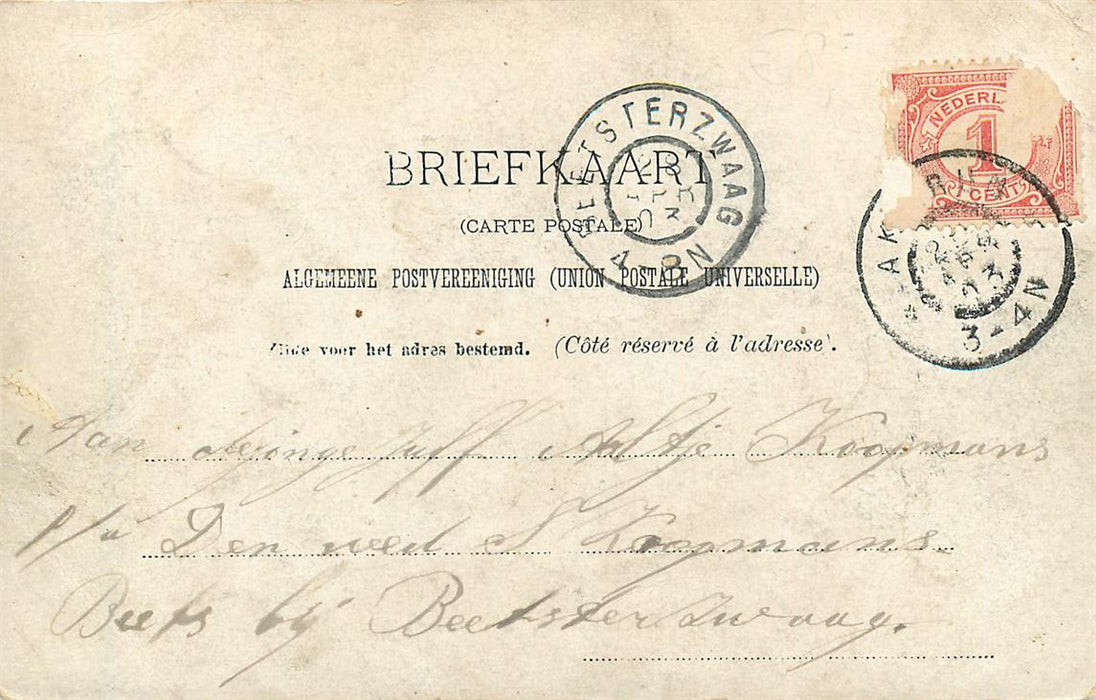 BEETSTERZWAAG
APR
03
4-8N
NEDERL
1
1 CENT
BRIEFKAART
AKK RUM
APR
03
3-4N
(CARTE POSTALE)
ALGEMEENE POSTVEREENIGING (UNION POSTALE UNIVERSELLE)
Zijde voor het adres bestemd. (Côté réservé à l'adresse).
Aan Mejonge Juff Aaltje Koopmans
p/a Den wed S Koopmans
Beets bij Beetsterzwaag.